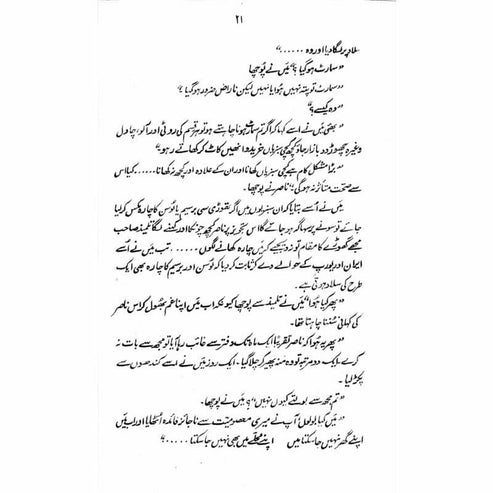 ۲۱
سلاد پر لگا دیا اور وہ ......"
"سمارٹ ہو گیا ؟" میں نے پوچھا
"سمارٹ تو پتہ نہیں ہوا یا نہیں لیکن ناراض ضرور ہو گیا ؟
"وہ کیسے ؟"
"بھئی میں نے اسے کہا کہ اگر تم سمارٹ ہونا چاہتے ہو تو ہر قسم کی روٹی اور آلو، چاول
وغیرہ چھوڑ دو بازار جاؤ کچھ کچی سبزیاں خریدو انہیں کاٹ کر کھاتے رہو"
"بڑا مشکل کام ہے کچی سبزیاں کھانا اور ان کے علاوہ اور کچھ نہ کھانا ..... کیا اس
سے صحت متاثر نہ ہو گی" ناصر نے پوچھا۔
میں نے اسے بتایا کہ ان سبزیوں میں اگر تھوڑی سی برسیم یا لوسن کا چارہ مکس کر لیا
جائے تو سونے پر سہاگہ ہو جائے گا اس تجویز پر ناصر کچھ چونکا اور کہنے لگا تلمیذ صاحب
مجھے گھوڑے کا مقام تو نہ دیجیے کہ میں چارہ کھانے لگوں ...... تب میں نے اسے
ایران اور یورپ کے حوالے دے کر ثابت کر دیا کہ لوسن اور برسیم کا چارہ بھی ایک
طرح کی سلاد ہوتی ہے۔
"پھر کیا ہوا" میں نے تلمیذ سے پوچھا کیونکہ اب میں اپنا غم بھول کر اس ناصر
کی کہانی سننا چاہتا تھا۔
"پھر یہ ہوا کہ ناصر تقریباً ایک ماہ تک دفتر سے غائب رہا آیا تو مجھ سے بات نہ
کرے۔ ایک دو مرتبہ تو وہ منہ پھیر کر چلا گیا۔ ایک روز میں نے اسے کندھوں سے
پکڑ لیا۔
"تم مجھ سے بولتے کیوں نہیں" ؟ میں نے پوچھا۔
"میں کیا بولوں آپ نے میری معصومیت سے ناجائز فائدہ اٹھایا اور اب میں
اپنے گھر نہیں جا سکتا میں اپنے محلے میں بھی نہیں جا سکتا ....."